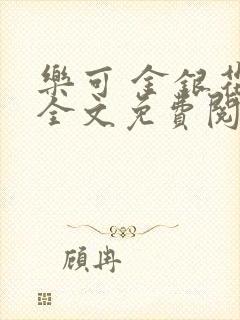 樂可 金銀花
全文免費閱
顧冉